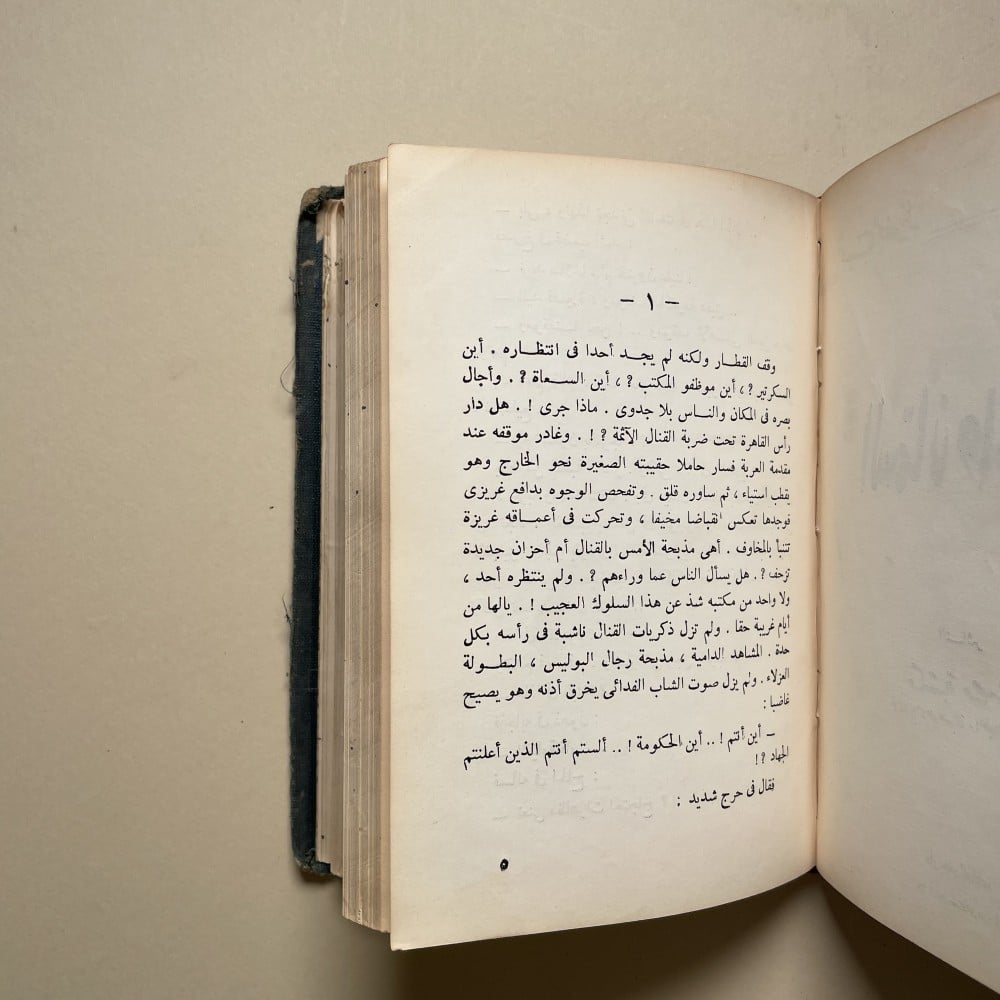 – ١ –
وقف القطار ولكنه لم يجـد أحدا فى انتظـاره . أين
السكرتير ؟ ، أين موظفو المكتب ؟ ، أين السـعاة ؟ . وأجال
بصره فى المكان والنـاس بلا جدوى . ماذا جرى ! . هل دار
رأس القاهرة تحت ضربة القنال الآثمة ؟ ! . وغادر موقفه عند
مقدمة العربة فسار حاملا حقيبته الصغيرة نحو الخارج وهو
يقطب استياء ، ثم ساوره قلق . وتفحص الوجوه بدافع غريزى
فوجدها تعكس انقباضا مخيفا ، وتحركت فى أعمـاقه غريزة
تتنبأ بالمخاوف . أهى مذبحة الأمس بالقنال أم أحزان جديدة
تزحف ؟ . هل يسأل الناس عما وراءهم ؟ . ولم ينتظره أحد ،
ولا واحد من مكتبه شذ عن هذا السلوك العجيب ! . يالها من
أيام غريبة حقا . ولم تزل ذكريات القنال ناشبة فى رأسه بكل
حدة . المشاهد الدامية ، مذبحة رجال البوليس ، البطـولة
العزلاء . ولم يزل صوت الشاب الفدائى يخرق أذنه وهو يصيح
غاضبا :
– أين أنتم ! .. أين الحكومة ! .. ألستم أنتم الذين أعلنتم
الجهاد ؟ !
فقال فى حرج شديد :
٥